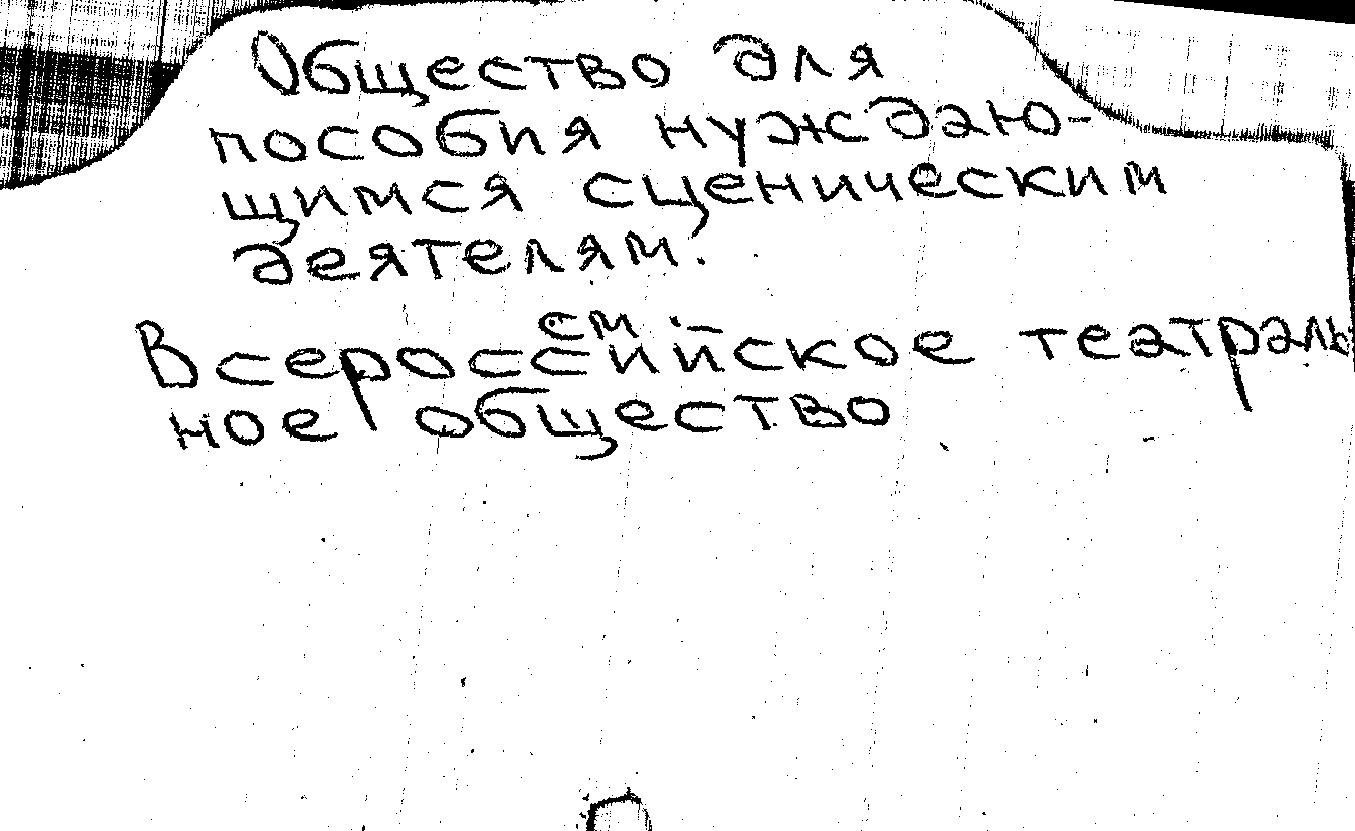 Общество для
пособия нуждаю-
щимся сценическим
деятелям.
см.
Всероссийское театраль
ное общество